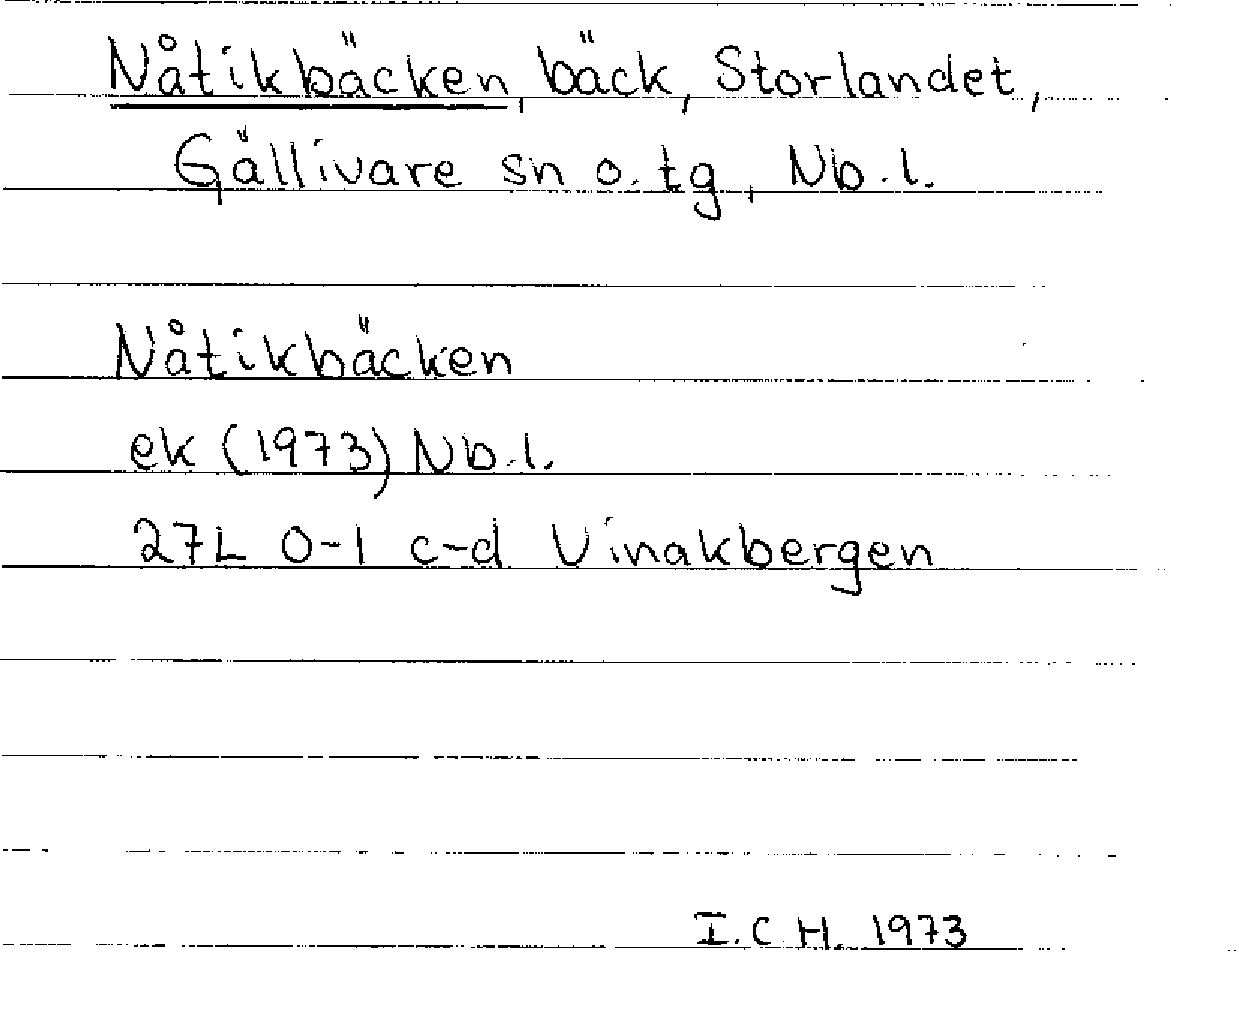 Nåtikbäcken, bäck, Storlandet,
Gällivare sn o. tg, Nb.l.
Nåtikbäcken
ek (1973) Nb.l.
27L 0-1 c-d Vinakbergen
I.C H. 1973